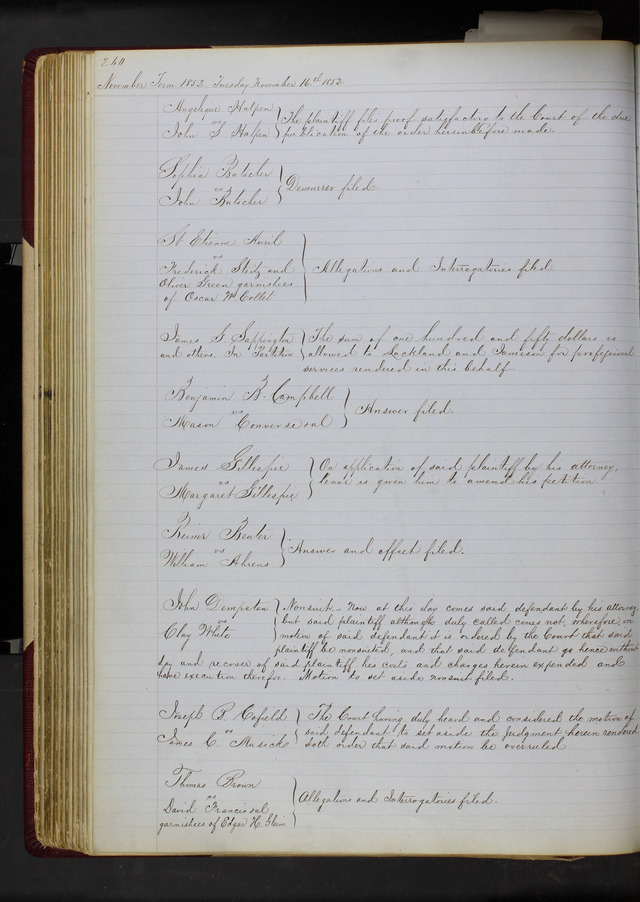 260
November Term 1852. Tuesday November 16th 1852.
Angelique Halpen
vs
John T Halpen
The plaintiff files proof satisfactory to the Court of the due
publication of the order hereinbefore made.
Sophia Butscher
vs
John Butscher
Demurrer filed.
St Etienne Auril
vs
Frederick Steitz and
Oliver Green garnishees
of Oscar W Collet
Allegations and Interrogatories filed
James G. Sappington
and others In Partition
The sum of one hundred and fifty dollars is
allowed to Lackland and Jamison for professional
services rendered in this behalf.
Benjamin B. Campbell
vs
Mason Converse et al
Answer filed.
James Gillespie
vs
Margaret Gillespie
On application of said plaintiff by his attorney,
leave is given him to amend his petition
Reimer Beuter
vs
William Ahrens
Answer and offset filed.
John Dempsten
vs
Clay White
Nonsuit - Now at this day comes said defendant by his attorney
but said plaintiff although duly called comes not, wherefore, on
motion of said defendant it is ordered by the Court that said
plaintiff be nonsuited, and that said defendant go hence without
day and recover of said plaintiff his costs and charges herein expended and
have execution therefor. Motion to set aside nonsuit filed.
Joseph B. Cofield
vs
James C. Musick
The Court having duly heard and considered the motion of
said defendant to set aside the judgment herein rendered
doth order that said motion be overruled
Thomas Brown
vs
David Francis et al
garnishees of Edgar H. Gleim
Allegations and Interrogatories filed.